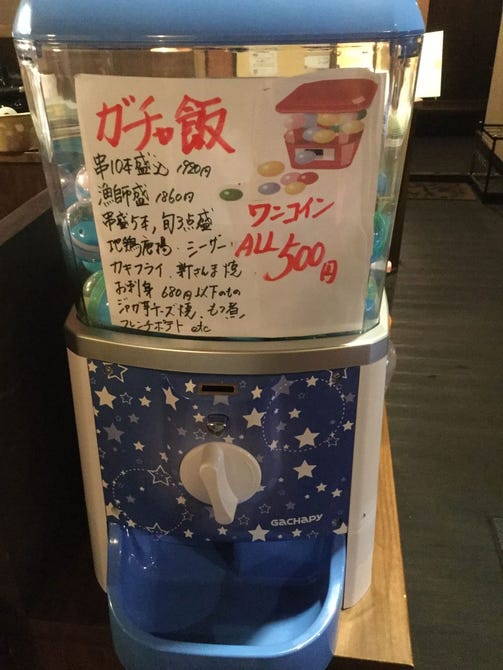 ガチャ飯
串10本盛込 1980円
漁師盛 1860円
串盛5本, 旬3点盛
地鶏唐揚・シーザー
カキフライ 新さんま焼
お刺身 680円以下のもの
ジャガ芋チーズ焼, もつ煮,
フレンチポテト etc
ワンコイン
ALL 500円
GACHAPY